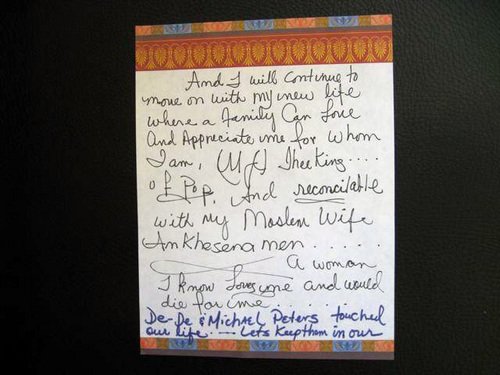 And I will continue to
move on with my new life
where a family Can love
And Appreciate me for whom
I am, (MJ) The King....
of Pop, And reconcilable
with my Moslem Wife
Ankhesenamen......
A woman
I know Loves me and would
die for me......
De-De & Michael Peters touched
our life.... Lets Keep them in our